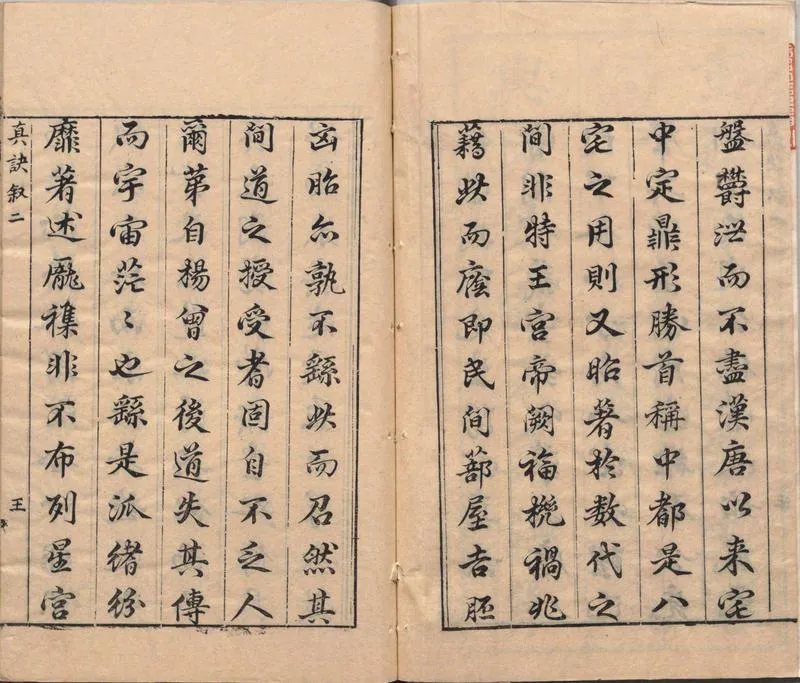 盤欝泄而不盡漢唐以来宅
中定鼎形勝首稱中都是八
宅之用則又昭著於數代之
間非特王宮帝闕福禍兆
藉此而應即民間蔀屋吉胚
凶胎亦孰不繇此而召然其
間道之授受者固自不乏人
爾苐自楊曾之後道失其傳
而宇宙茫〻也繇是派緒紛
靡著述龐襍非不布列星宮
真訣叙二
王